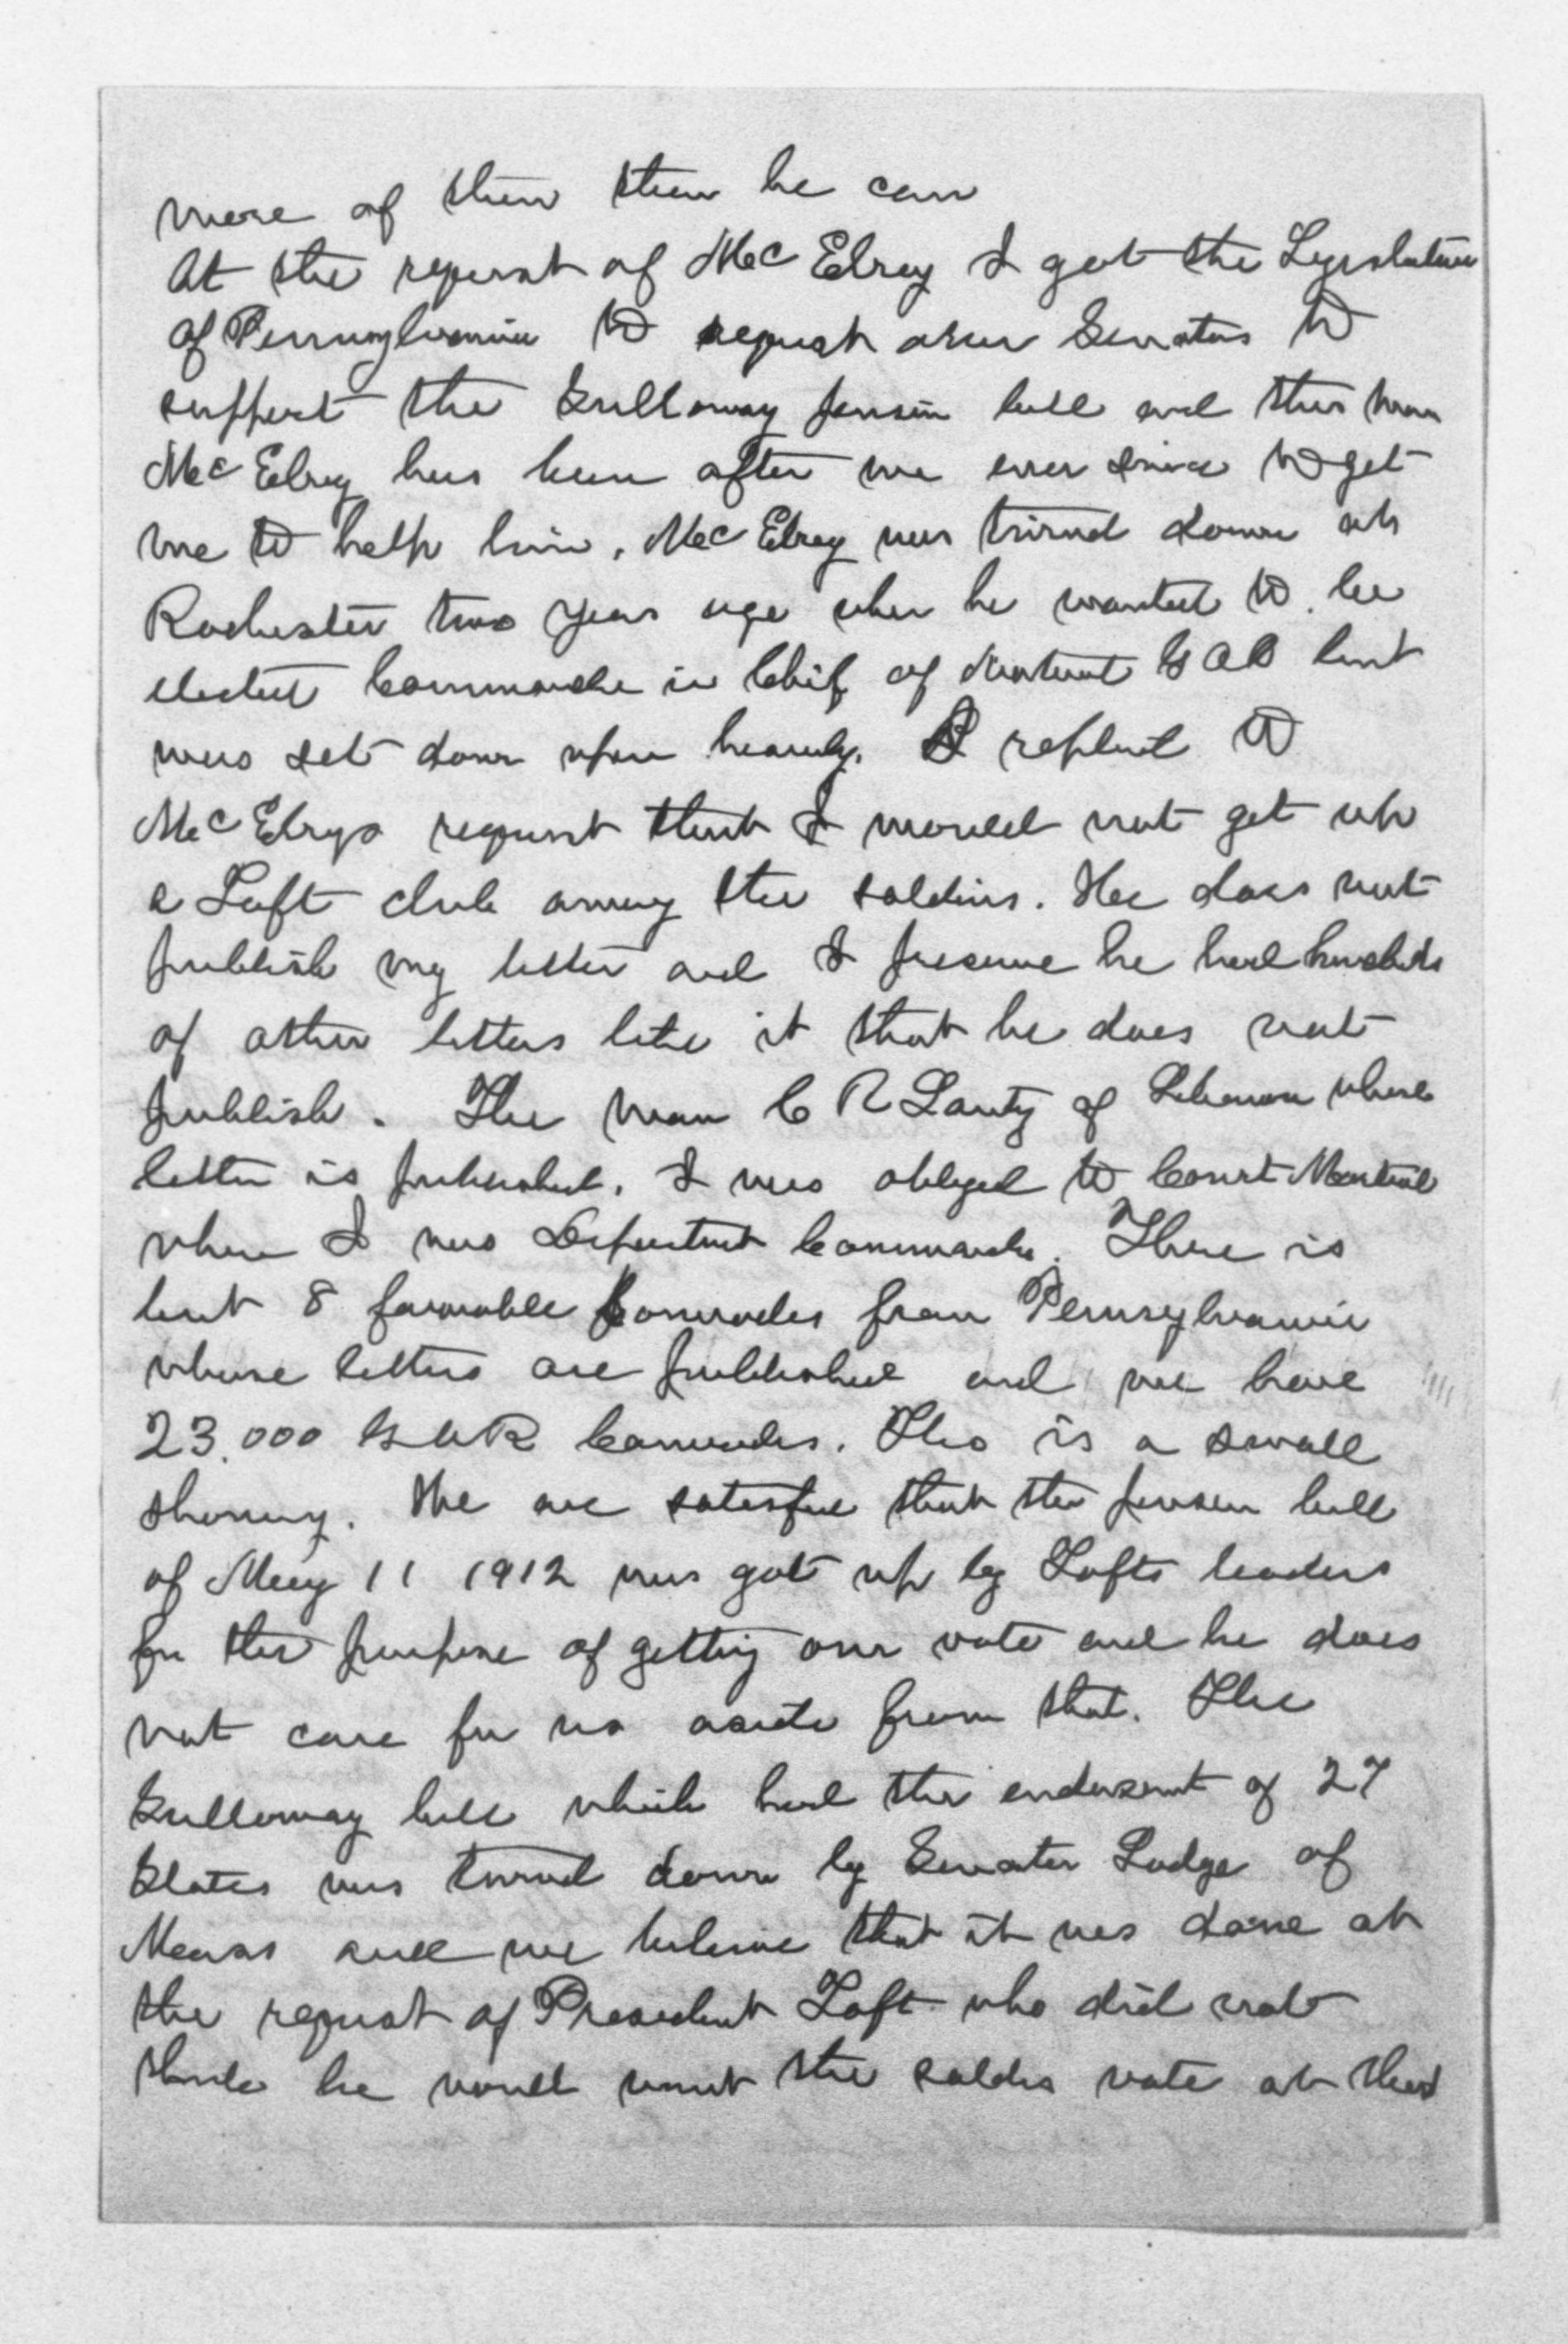 more of them then he can
At the request of McElroy I got the Legislature
of Pennsylvania to request our Senators to
support the Sulloway pension bill and this man
McElroy has been after me ever since to get
me to help him. McElroy was turned down at
Rochester two years ago when he wanted to be
elected Commander in Chief of National G A R but
was set down upon heavily. I replied to
McElroys request that I would not get up
a Taft club among the soldiers. He does not
publish my letter and I presume he had hundreds
of other letters like it that he does not
publish. The man C R Lantz of Lebanon whose
letter is published. I was obliged to Court Martial
when I was Department Commander. There is
but 8 favorable Comrades from Pennsylvania
whose letters are published and we have
23.000 G A R Comrades. This is a small
showing. We are satisfied that the pension bill
of May 11 1912 was got up by Tafts leaders
for the purpose of getting our vote and he does
not care for us aside from that. The
Sulloway bill which had the endorsment of 27
States was turned down by Senator Lodge of
Mass and we believe that it was done at
the request of President Taft who did not
think he would want the soldiers vote at that